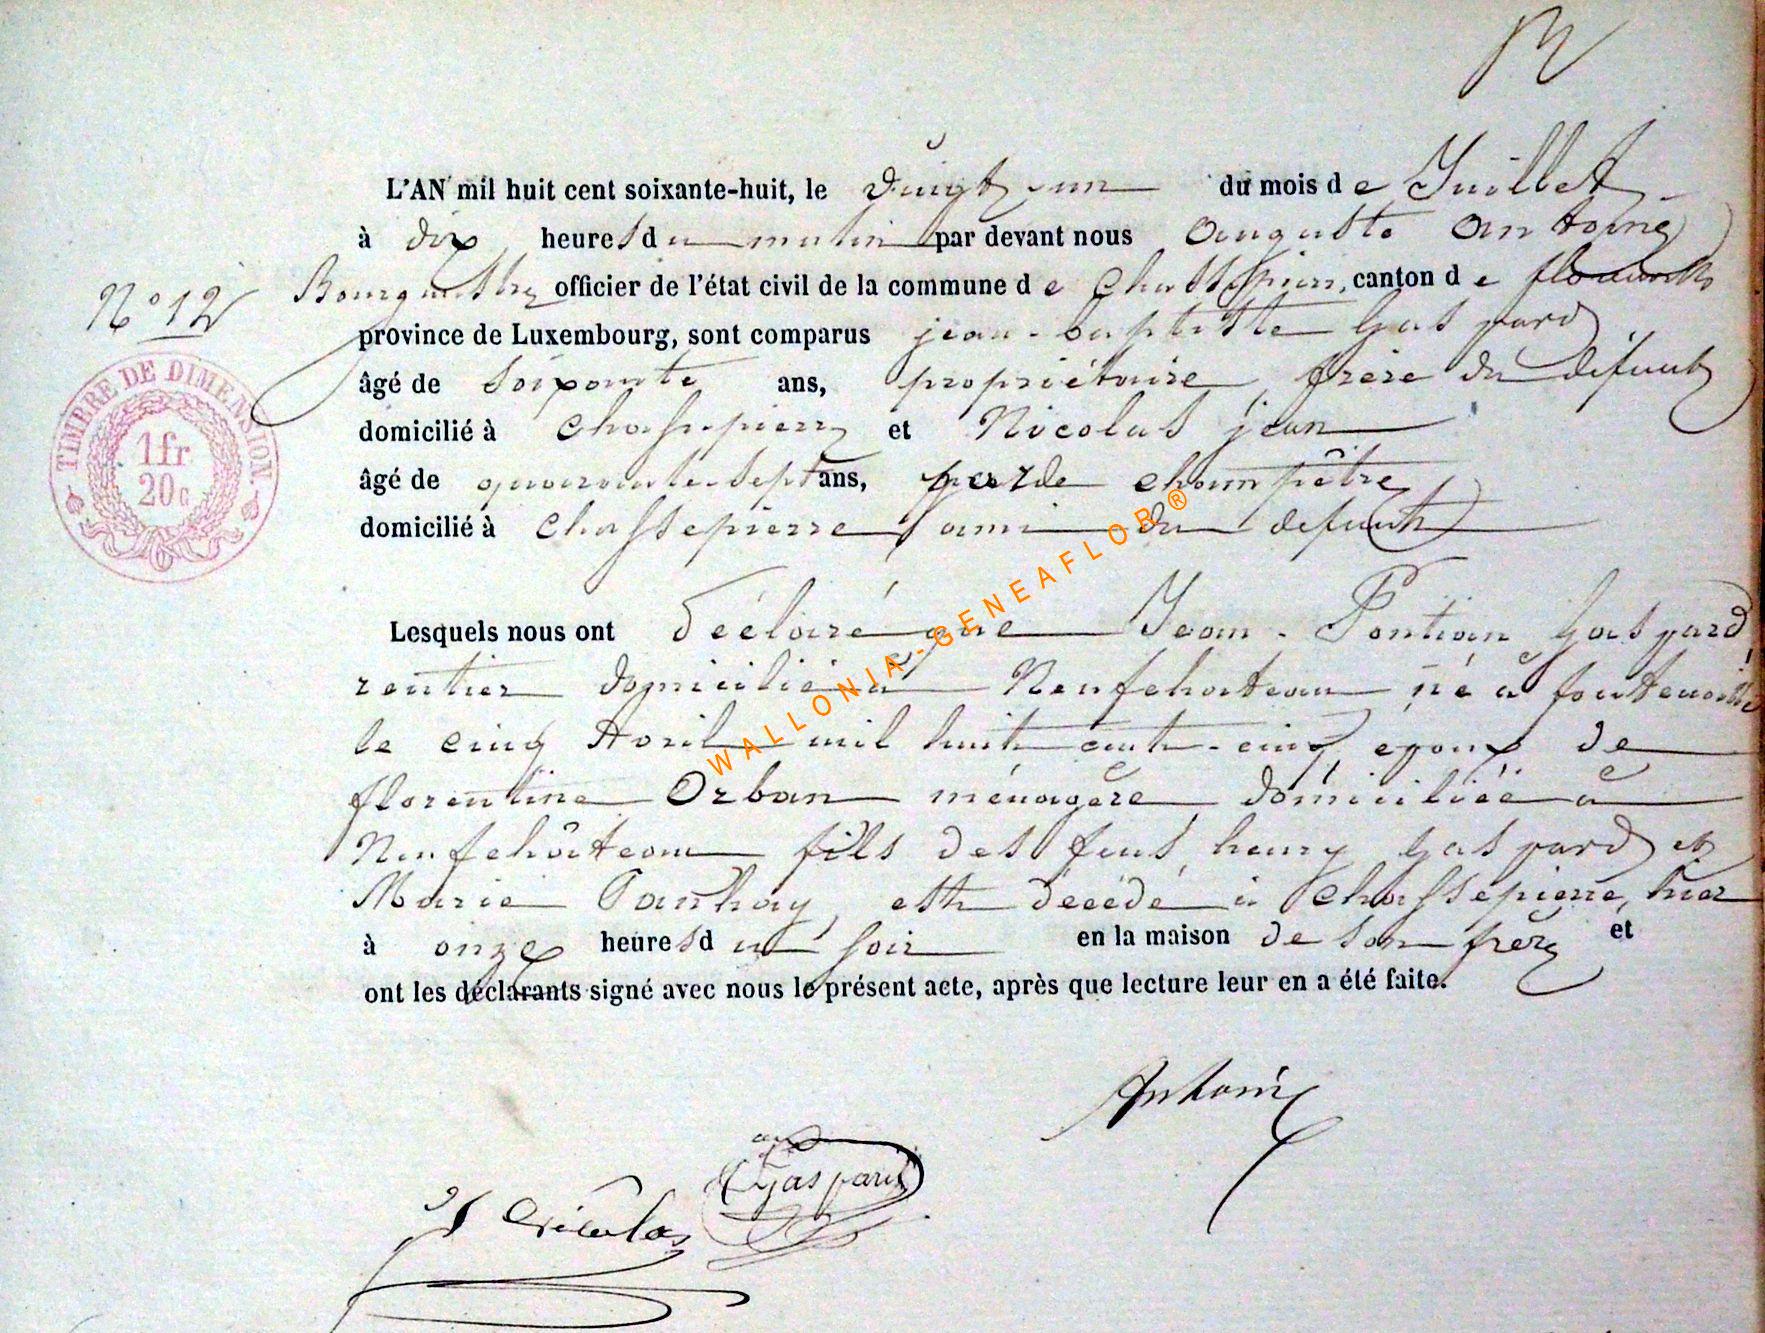 L'AN mil huit cent soixante-huit, le vingt-un du mois de Juillet
à dix heures du matin par devant nous Auguste Antoine
N° 12
Bourgmestre officier de l'état civil de la commune de Chassepierre, canton de florenville
province de Luxembourg, sont comparus jean-baptiste Gaspard
TIMBRE DE DIMENSION
1 fr
20 c
âgé de soixante ans, propriétaire, frère du défunt
domicilié à Chassepierre et Nicolas jean
âgé de quarante-sept ans, garde champêtre
domicilié à Chassepierre, ami du defunt
Lesquels nous ont déclaré que Jean-Pontian Gaspard
rentier domicilié à Neufchateau né à fontenoille
le cinq Avril mil huit cent-cinq, epoux de
florentine Orban ménagère, domiciliée à
Neufchâteau fils des feus henry Gaspard et
Marie Panhay, est décédé à Chassepierre, hier
à onze heures du soir en la maison de son frère et
ont les déclarants signé avec nous le présent acte, après que lecture leur en a été faite.
WALLONIA-GENEAFLOR®
Antoine
Gaspard
J Nicolas